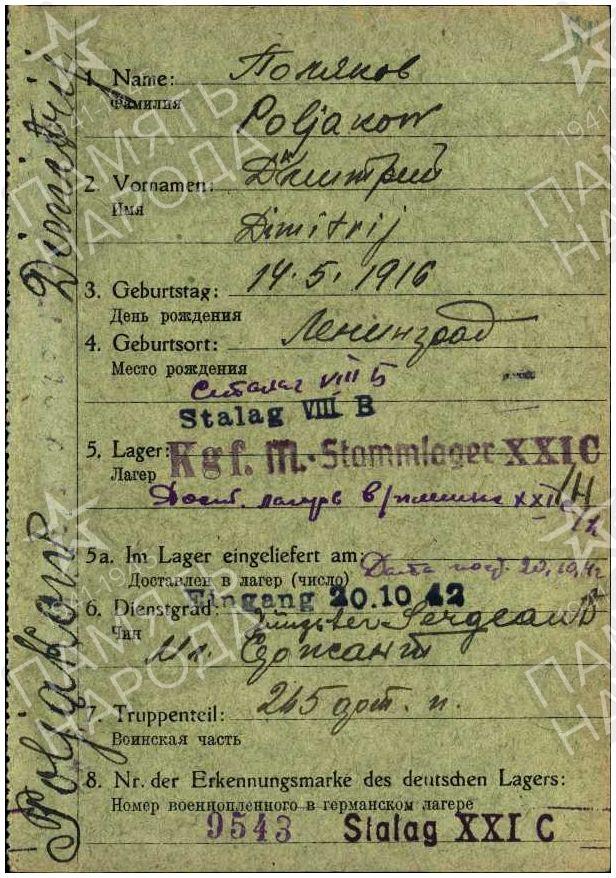 1. Name: Поляков
Фамилия
Poljakow
2. Vornamen: Дмитрий
Имя
Dimitrij
3. Geburtstag: 14. 5. 1916
День рождения
4. Geburtsort: Ленинград
Место рождения
Сталаг VIII Б
Stalag VIII B
5. Lager: Kgf. M.-Stammlager XXI C
Лагерь
лагерь XXI
5a. Im Lager eingeliefert am: Дата 20.10.42
Доставлен в лагерь (число)
Eingang 20.10 42
6. Dienstgrad: Sergeant
Чин
Мл. Сержант
7. Truppenteil: 245
Воинская часть
8. Nr. der Erkennungsmarke des deutschen Lagers:
Номер военнопленного в германском лагере
9543 Stalag XXI C
Poljakow Dimitrij
ПАМЯТЬ НАРОДА